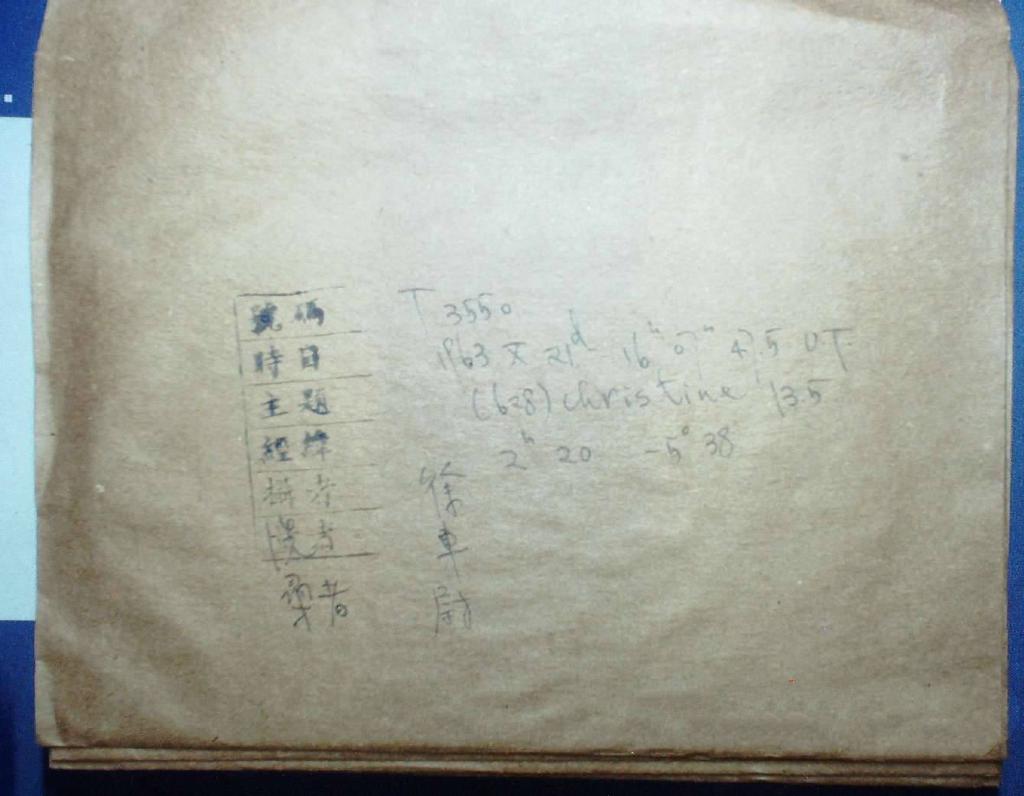 號碼 T 3550
時日 1963 X 21d 16h 07m 47.5 UT
主題 (628) christine 13.5
經緯 2h 20 -5° 38'
攝者 徐
者 車
者 尉